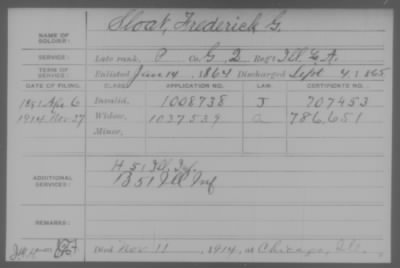 NAME OF SOLDIER: Sloat, Frederick G.
SERVICE: Late rank, P Co. G, 2 Reg't Ill. L. A.
TERM OF SERVICE: Enlisted June 14, 1864 Discharged Sept 4, 1865
DATE OF FILING. CLASS. APPLICATION NO. LAW. CERTIFICATE NO.
1891 Apr 6 Invalid, 1008738 J 707453
1914, Nov 27 Widow, 1037539 a 786,651
Minor,
ADDITIONAL SERVICES: H 51 Ill. Inf.
B 51 Ill Inf
REMARKS:
Died Nov 11, 1914, at Chicago, Ill.